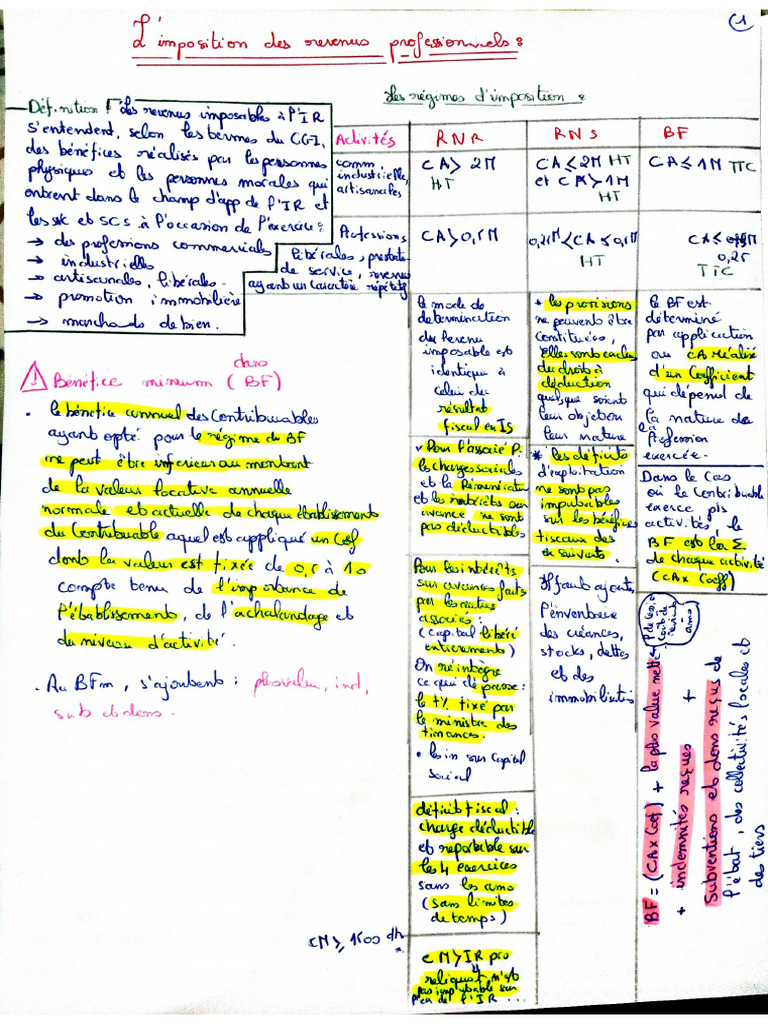 1
L'imposition des revenus professionnels :
Les régimes d'imposition :
Définition : les revenus imposables à l'IR
s'entendent, selon les termes du CGI,
des bénéfices réalisés par les personnes
physiques et les personnes morales qui
entrent dans le champ d'app de l'IR et
les snc et SCS à l'occasion de l'exercice :
→ des professions commerciales
→ industrielles
→ artisanales, libérales.
→ promotion immobilière
→ marchands de bien.
Activités
RNR
RNS
BF
comm
industrielle,
artisanales
CA > 2M
HT
CA ≤ 2M HT
et CA > 1M
HT
CA ≤ 1M TTC
Professions
libérales, prestat
de service, revenus
ayant un caractère répétitif
CA > 0,5M
0,25M < CA ≤ 0,5M
HT
CA ≤
0,25
TTC
⚠ Bénéfice minimum (dans BF)
• le bénéfice annuel des contribuables
ayant opté pour le régime du BF
ne peut être inférieur au montant
de la valeur locative annuelle
normale et actuelle de chaque établissement
du contribuable auquel est appliqué un Cof
dont la valeur est fixée de 0,5 à 10
compte tenu de l'importance de
l'établissement, de l'achalandage et
du niveau d'activité.
. Au BFm, s'ajoutent : plus value, ind,
sub et dons.
le mode de
détermination
du revenu
imposable est
identique à
celui du
résultat
fiscal en IS
✓ Pour l'associé P:
les charges sociales
et la Rémunération
et les intérêts sur
avance ne sont
pas déductibles
Pour les intérêts
sur avances faits
par les autres
associés :
(capital libéré
entièrement)
On réintègre
ce qui dépasse :
le t% fixé par
le ministre des
finances.
• les in sur capital
social
déficit fiscal :
charge déductible
et reportable sur
les 4 exercices
sans les amo
(sans limites
de temps)
CM ≥ 1500 dh
CM > IR pro
reliquat n'st
pas imputable sur
l'exc de l'IR ...
* les provisions
ne peuvent être
constituées,
elles sont exclues
du droit à
déduction
quelque soient
leur objet ou
leur nature
* les déficits
d'exploitation
ne sont pas
imputables
sur les bénéfices
fiscaux des
ex suivants.
Il faut ajouter
l'inventaire
des créances,
stocks, dettes
et des
immobilisatis
le BF est
déterminé
par application
au CA réalisé
d'un coefficient
qui dépend de
la nature de
la Profession
exercée.
Dans le cas
où le contribuable
exerce pls
activités, le
BF est la Σ
de chaque activité
(CA x Coeff)
BF = (CA x Coef) + la plus value nette
+ indemnités reçues +
Subventions et dons reçus de
l'état, des collectivités locales et
des tiers